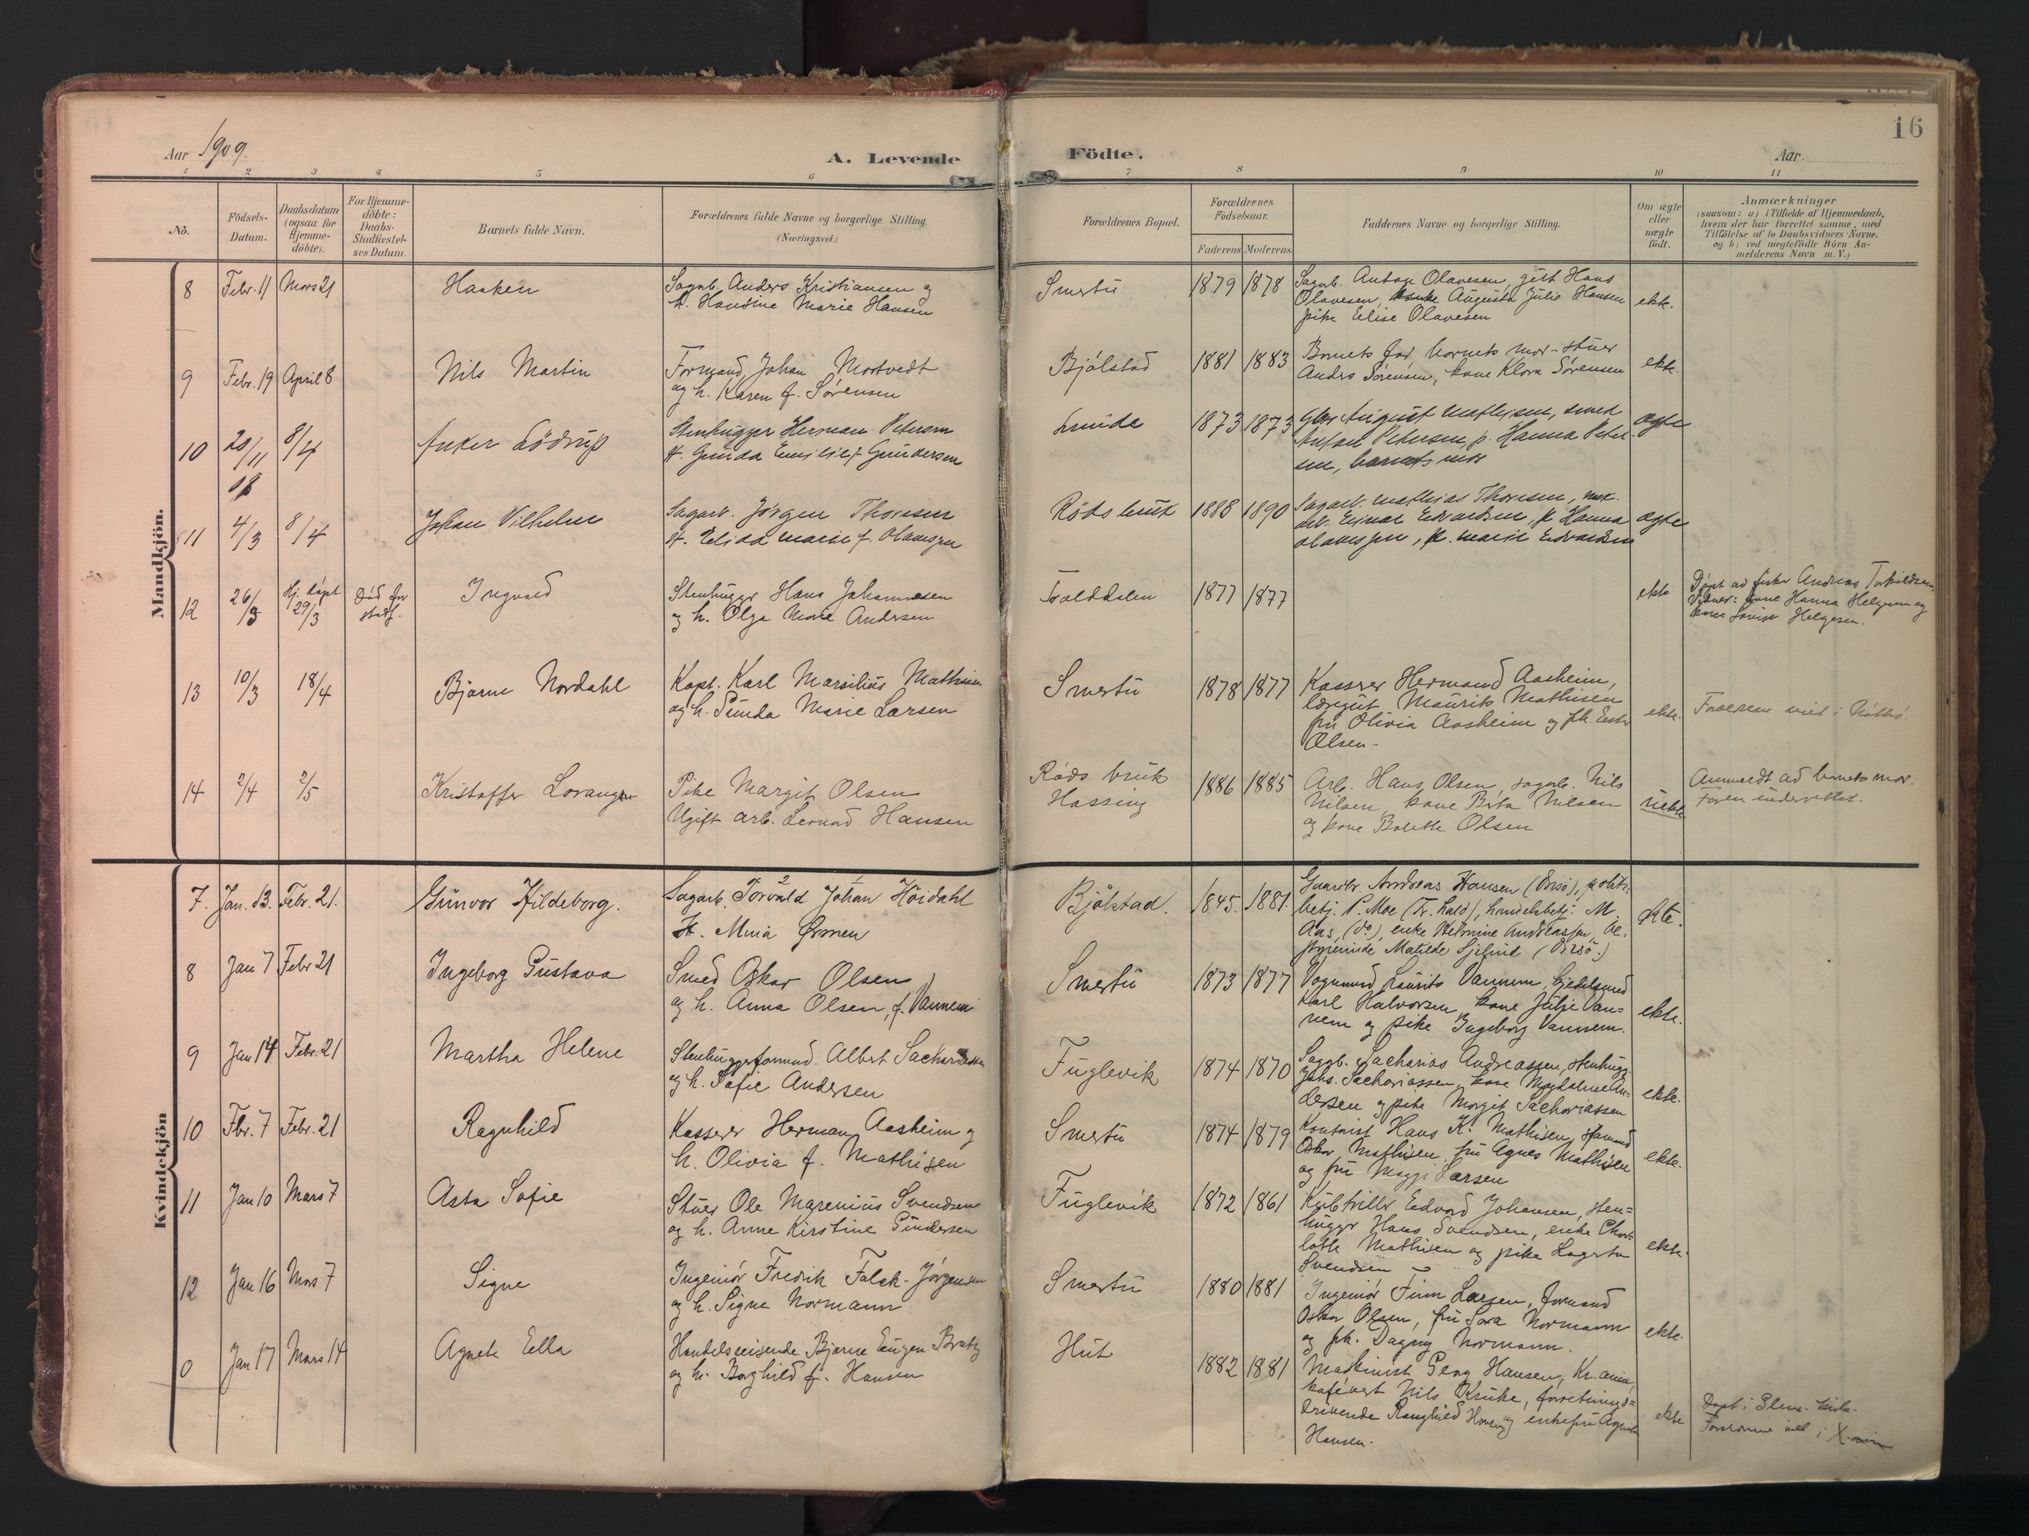 16
Aar 1909.
A. Levende
Födte.
Aar
1 2 3 4 5 6 7 8 9 10 11
No.
Födsels-
Datum.
Daabsdatum
(ogsaa for
Hjemme-
döbte).
For Hjemme-
döbte:
Daabs-
Stadfæstel-
ses Datum.
Barnets fulde Navn.
Forældrenes fulde Navne og borgerlige Stilling.
(Næringsvei.)
Forældrenes Bopæl.
Forældrenes
Födselsaar.
Faderens Moderens
Faddernes Navne og borgerlige Stilling.
Om ægte
eller
uægte
født.
Anmærkninger
(saasom: a) i Tilfælde af Hjemmedaab,
hvem der har forrettet samme, med
Tilföielse af to Daabsvidners Navne.
og b) ved uægtefödte Börn An-
melderens Navn m. V.)
Mandkjön.
8 Febr. 11 Mars 21 Haaken
Sagarb. Anders Kristiansen og
h. Hansine Marie Hansen
Smertu 1879 1878
Sagarb. Anton Olavesen, gift Hans
Olavesen, Augusta Julie Hansen
pike Elise Olavesen
ekte.
9 Febr. 19 April 8 Nils Martin
Formand Johan Mortvedt
og h. Karen f. Sørensen
Bjölstad 1881 1883
Barnets far, barnets mor - stuer
Anders Sørensen, kone Klara Sörensen
ekte.
10 20/11 08 8/4 Anker Lödrup
Stenhugger Herman Petersen
H. Gunda Emilie f. Gundersen
Lunde 1873 1873
August Mathisen, smed
Petersen, p. Hanna Peter-
sen, barnets mor
ægte
11 4/3 8/4 Johan Vilhelm
Sagarb. Jörgen Thoresen
H. Elida Marie f. Olavesen
Röds bruk 1888 1890
Sagarb. Mathias Thoresen,
Einar Edvardsen, p. Hanna
Olavessen, p. Marie Edvardsen
ægte
12 26/3 Hj. døpt 29/3 Död før stadf. Ingvald
Stenhugger Hans Johannesen
og h. Olga Marie Andersen
Tralddalen 1877 1877
ekte
Döpt av fisker Andreas Torkildsen
Vidner: Hanna Helgesen og
kone Lovise Helgesen.
13 10/3 18/4 Bjarne Nordahl
Kapt. Karl Marsilius Mathisen
og h. Gunda Marie Larsen
Smertu 1878 1877
Kasserer Hermand Aasheim,
Maurits Mathisen
fru Olivia Aasheim og pk. Ester
Olsen -
ekte.
Forældrene viet i
14 2/4 2/5 Kristoffer
Pike Margit Olsen
Ugift arb. Leonard Hansen
Røds bruk
Hassing
1886 1885
Arb. Hans Olsen, sagarb. Nils
Nilsen, kone Berta Nilsen
og kone Bolette Olsen
uekte
Anmeldt av barnets mor.
Faren underrettet.
Kvindekjön
7. Jan. 13. Febr. 21. Gunvor Hildeborg.
Sagarb. Torvald Johan Höidahl
H. Mina Ørmen
Bjölstad. 1845. 1881.
Gaardbr. Andreas Hansen (Orsö), politi-
betj. P. Moe (Fr. hald), handelsbetj. M.
Aas, (do), enke Helmine Andreassen,
Matilde Sjelind (Orsö.)
ekte.
8 Jan 7 Febr 21 Ingeborg Gustava
Smed Oskar Olsen
og h. Anna Olsen, f. Vannem
Smertu 1873 1877
Vognmand Laurits Vannem,
Karl Halvorsen kone Julie Van-
nem og pike Ingeborg Vannem.
ekte.
9 Jan 14 Febr. 21 Martha Helene
Stenhuggerformand. Albert Sachariassen
og h. Sofie Andersen
Fuglevik 1874 1870
Sagb. Sacharias Andreassen, stenhugg.
Johs. Sachariassen, kone Magdalene An-
dersen og pike Margit Sachariassen
ekte.
10 Fbr. 7 Febr. 21 Ragnhild
Kasserer Herman Aasheim og
h. Olivia f. Mathisen
Smertu 1874 1879
Kontorist Hans K. Mathisen,
Oskar Mathisen, fru Agnes Mathisen
og fru Larsen
ekte.
11 Jan 10 Mars 7 Asta Sofie
Stuer Ole Marenius Svendsen
og h. Anne Kirstine Gundersen
Fuglevik 1872 1861
Edvard Johansen, sten-
hugger Hans Svendsen, enke Char-
lotte Mathisen og pike Lagerta
Svendsen
ekte.
12 Jan 16 Mars 7 Signe
Ingeniør Fredrik Falck-Jørgensen
og h. Signe Normann
Smertu 1880 1881
Ingeniør Finn Larsen, formand
Oskar Olsen, fru Sara Normann
og pk. Dagny Normann.
ekte.
0 Jan 17 Mars 14 Agnete Ella
Handelsreisende Bjarne Eugen
og h. Borghild f. Hansen
Hut 1882 1881
Maskinist Georg Hansen, Kr.ania,
kafévert Nils Kruke, forretnings-
drivende Ragnhild Hansen og enkefru Agnete
Hansen.
ekte
Døpt i Glem. kirke.
Forældrene viet i